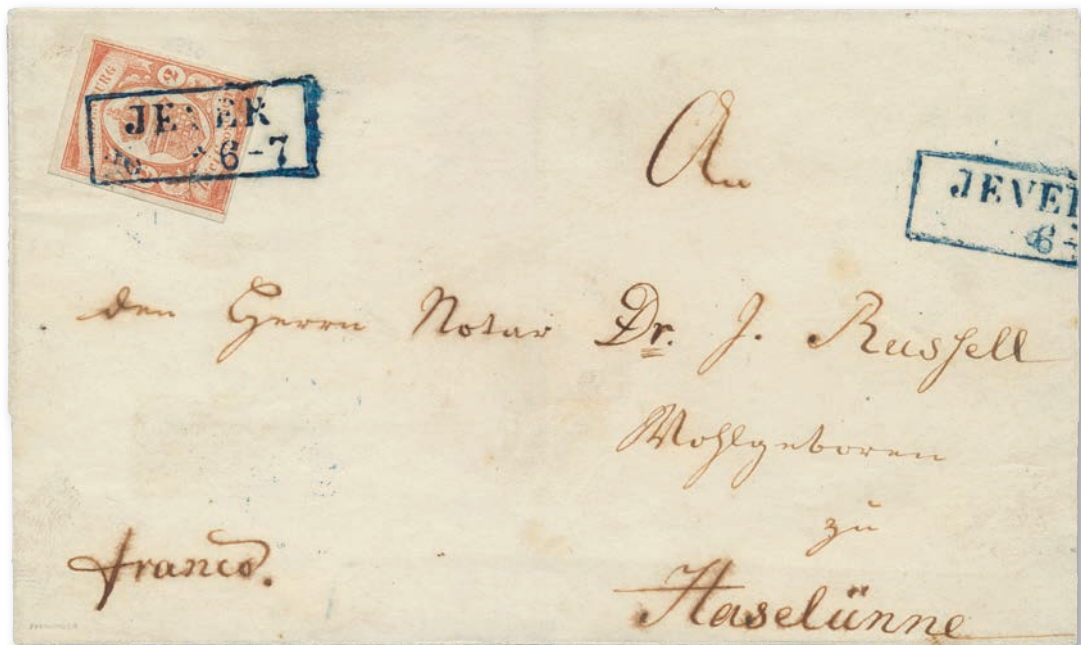 JEVER
6-7
2
An
JEVE
6-
den Herrn Notar Dr. J. Russell
Wohlgeboren
zu
franco.
Haselünne